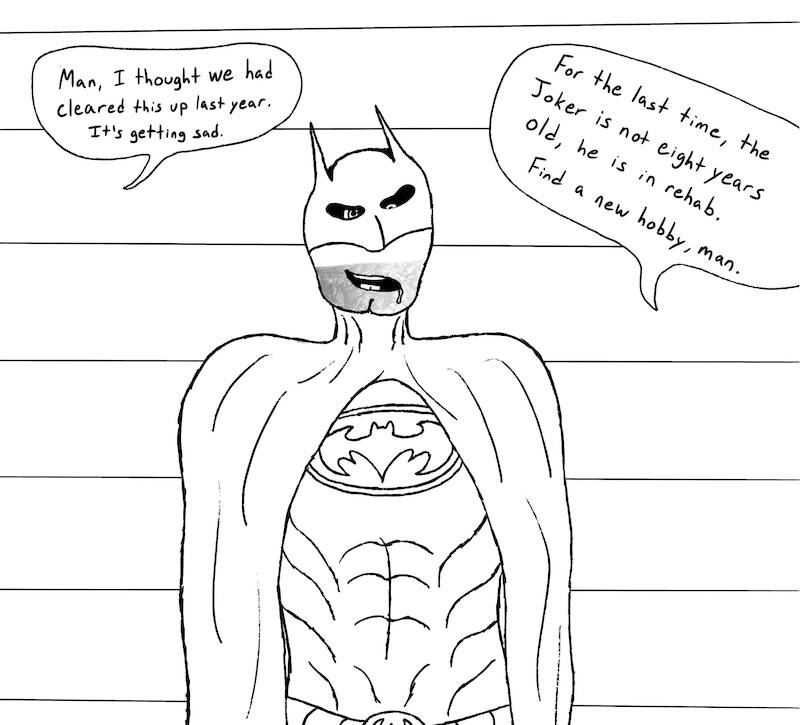 Man, I thought we had
cleared this up last year.
It's getting sad.
For the last time, the
Joker is not eight years
old, he is in rehab.
Find a new hobby, man.